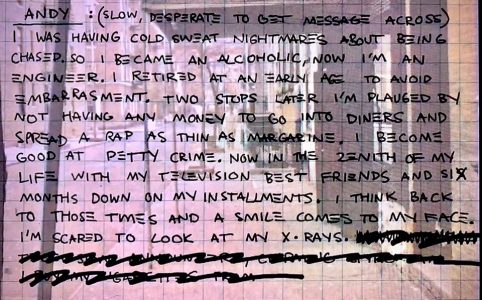 ANDY : (SLOW, DESPERATE TO GET MESSAGE ACROSS)
I WAS HAVING COLD SWEAT NIGHTMARES ABOUT BEING
CHASED. SO I BECAME AN ALCOHOLIC, NOW I'M AN
ENGINEER. I RETIRED AT AN EARLY AGE TO AVOID
EMBARRASMENT. TWO STOPS LATER I'M PLAUGED BY
NOT HAVING ANY MONEY TO GO INTO DINERS AND
SPREAD A RAP AS THIN AS MARGARINE. I BECOME
GOOD AT PETTY CRIME. NOW IN THE ZENITH OF MY
LIFE WITH MY TELEVISION BEST FRIENDS AND SIX
MONTHS DOWN ON MY INSTALLMENTS. I THINK BACK
TO THOSE TIMES AND A SMILE COMES TO MY FACE.
I'M SCARED TO LOOK AT MY X-RAYS.